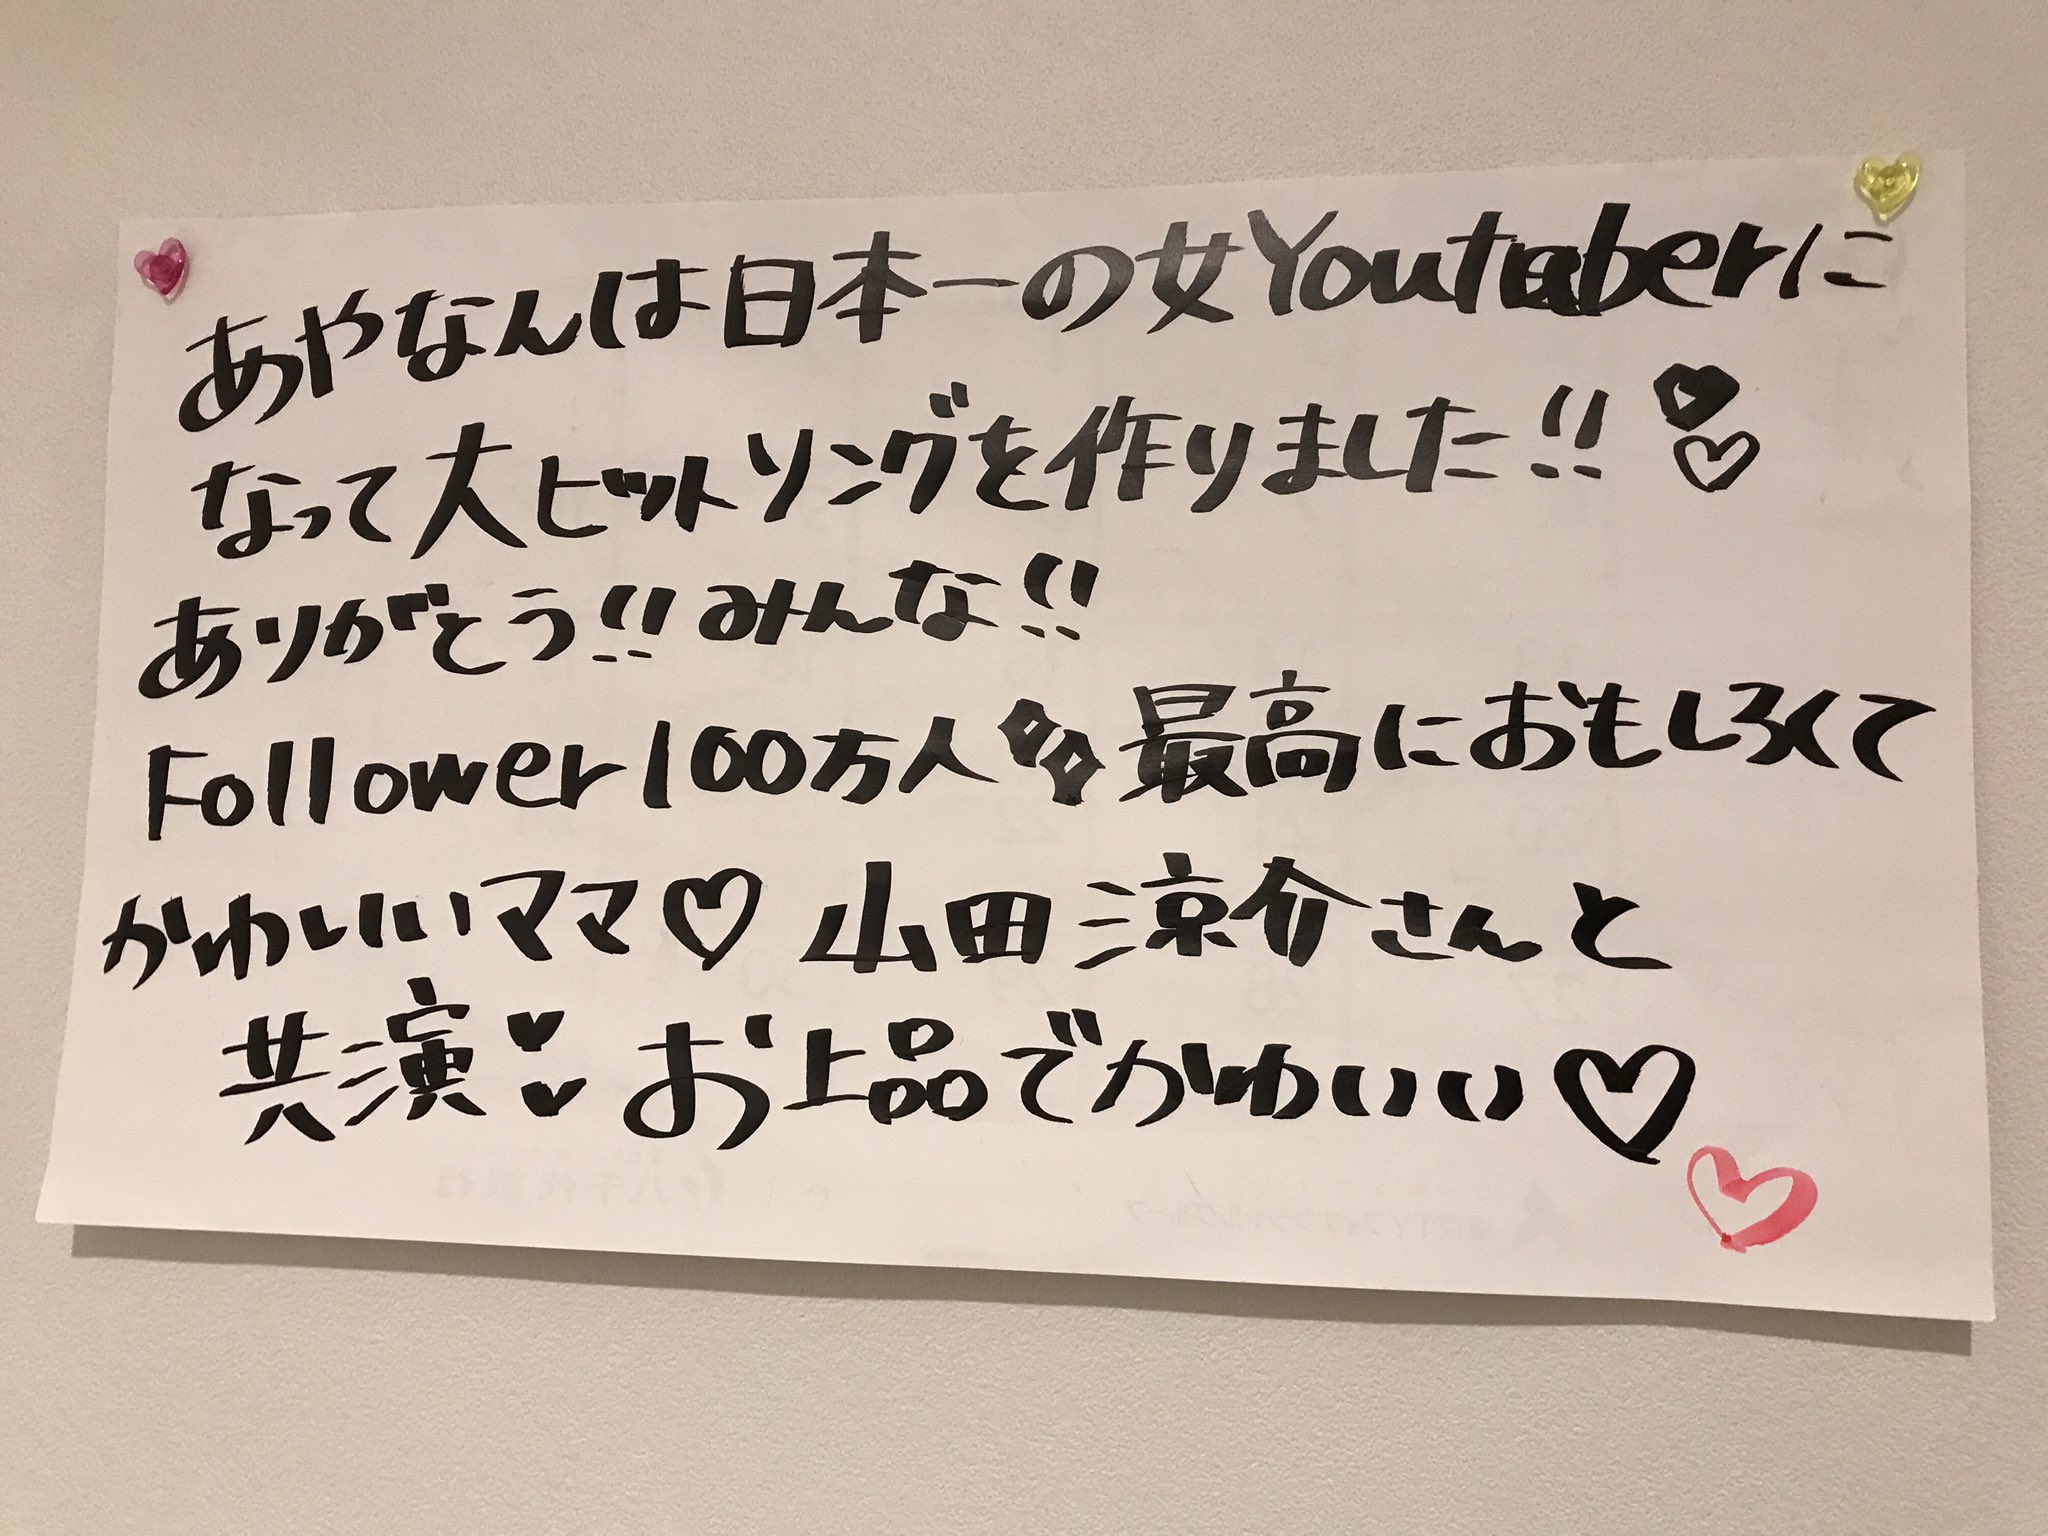 あやなんは日本一の女Youtuberに
なって大ヒットソングを作りました!!
ありがとう!!みんな!!
Follower100万人 最高におもしろくて
かわいいママ♡ 山田涼介さんと
共演 お上品でかわいい♡